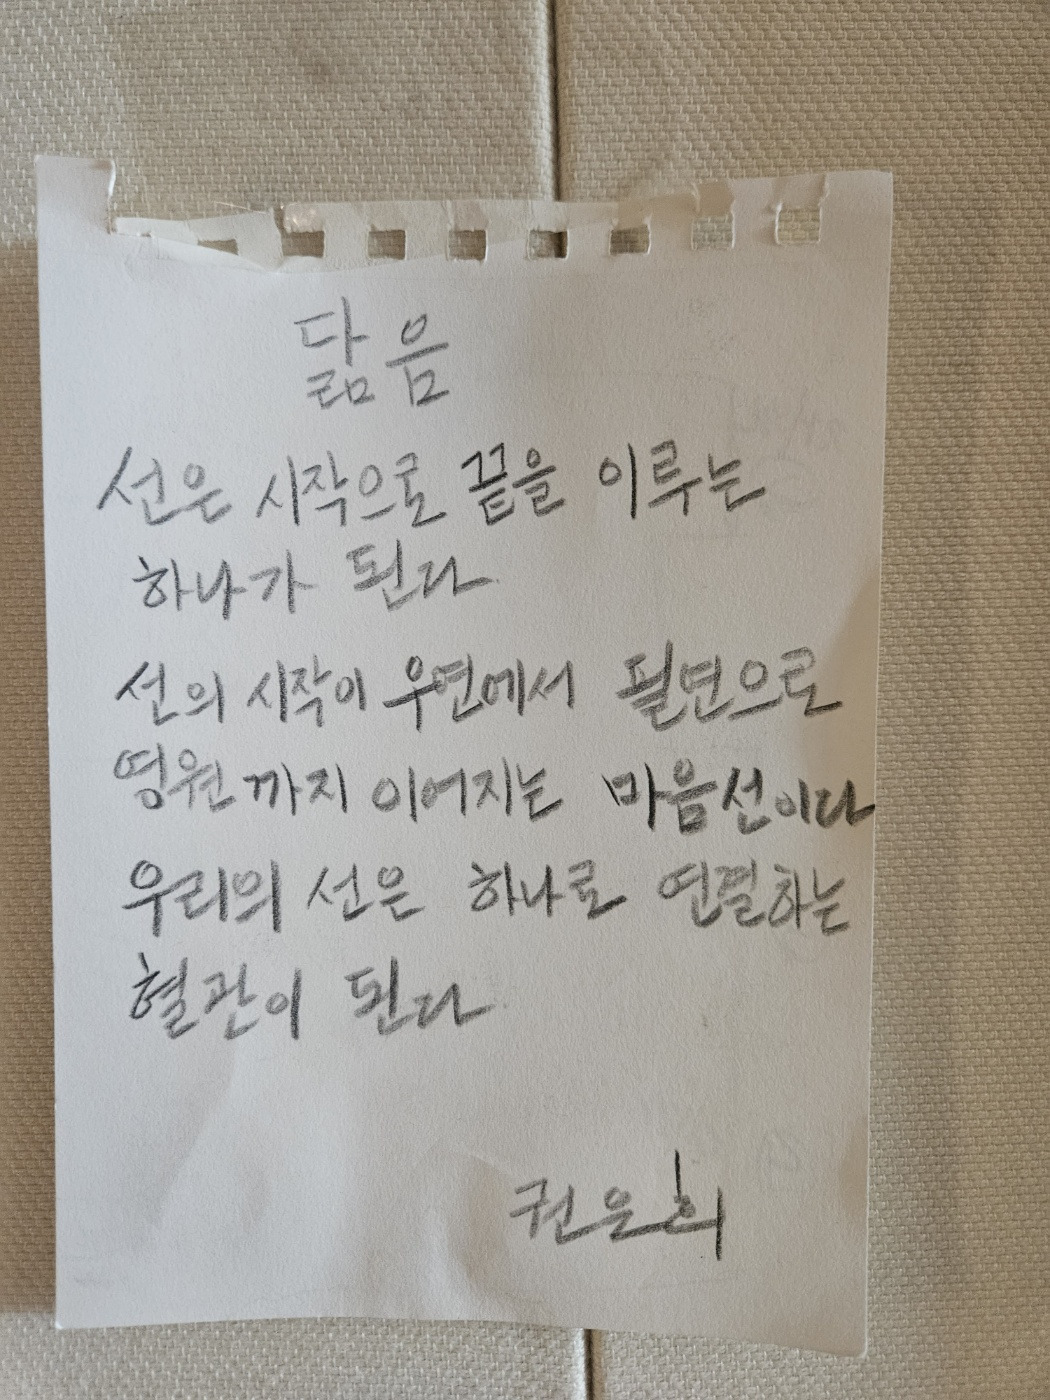 닮음
선은 시작으로 끝을 이루는
하나가 된다
선의 시작이 우연에서 필연으로
영원까지 이어지는 마음선이다
우리의 선은 하나로 연결하는
혈관이 된다
권은희